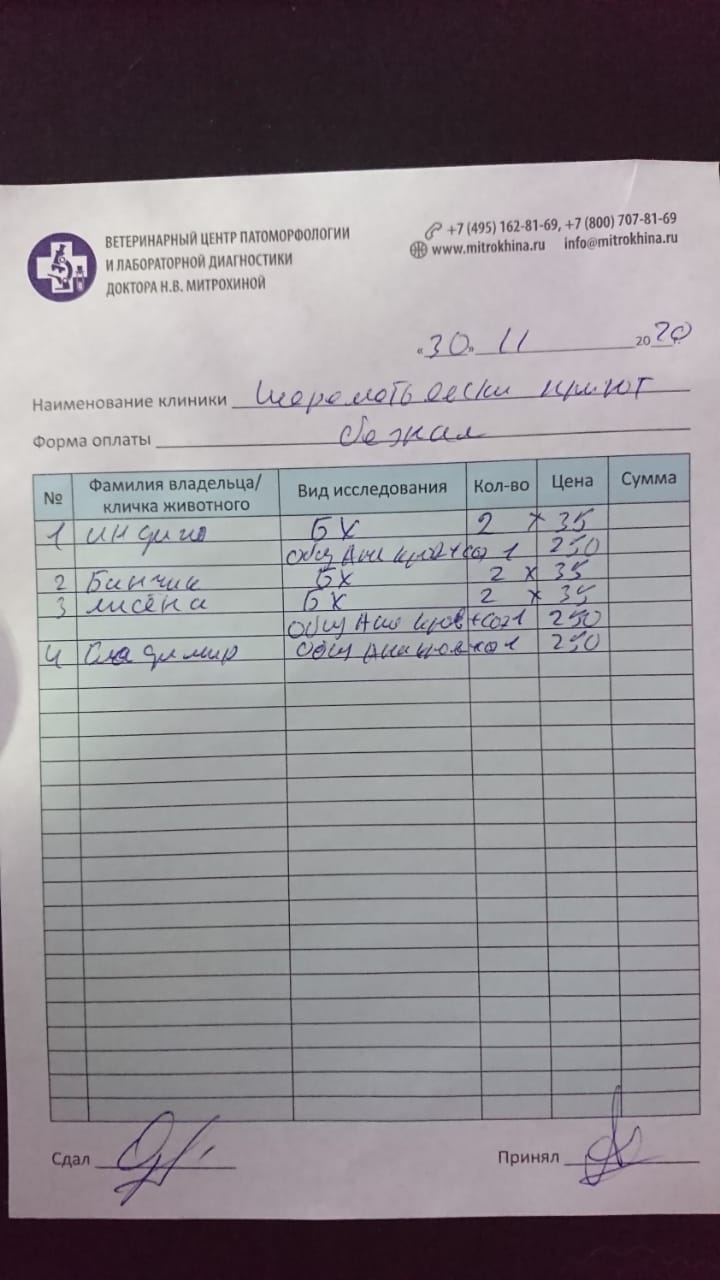 ВЕТЕРИНАРНЫЙ ЦЕНТР ПАТОМОРФОЛОГИИ
И ЛАБОРАТОРНОЙ ДИАГНОСТИКИ
ДОКТОРА Н.В. МИТРОХИНОЙ
+7 (495) 162-81-69, +7 (800) 707-81-69
www.mitrokhina.ru info@mitrokhina.ru
«30» 11 2020
Наименование клиники приют
Форма оплаты безнал
№ Фамилия владельца/ кличка животного Вид исследования Кол-во Цена Сумма
1 индиго БХ 2 х 35
общ Ана кров+соэ 1 250
2 Банчик БХ 2 х 35
3 лисёна БХ 2 х 35
общ Ана кров+соэ 1 250
4 Владимир общ Ана 1 250
Сдал Принял